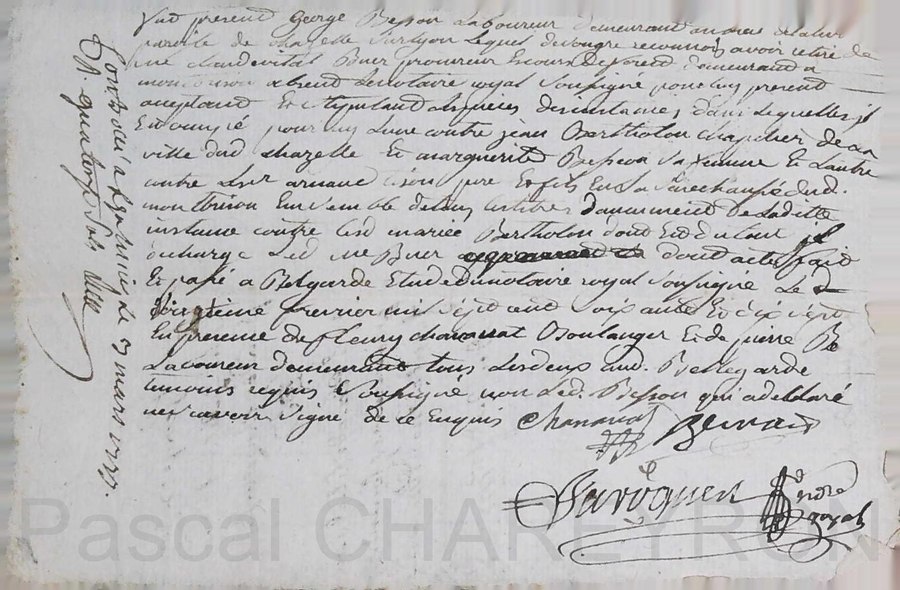 fut présent George Besson Laboureur demeurant au lieu de
paroisse de chazelle sur Lyon Lequel de son gré reconnois avoir retiré de
me claude vital Buer procureur Es cours de forest demeurant a
montbrison absent Le notaire royal soussigné pour luy present
acceptant Et stipulant Les pieces des instances dans Lesquelles il
En occupé pour luy Lune contre jean Bertholon chapelier de La
ville dud chazelle Et marguerite Besson sa femme Et Lautre
contre Le sr arnaud pere Et fils En La senechaussé dud.
montbrison Ensemble de tous Les titres Document de Laditte
instance contre Lesd mariés Bertholon dont Et du tout il
décharge Led me Buer dont acte fait
Et passé a Belgarde Etude du notaire royal soussigné Le
vingtieme fevrier mil sept cent soix ante Et dix sept
En presence de fleury chananat Boulanger Et de pierre Be
Laboureur demeurant tous Les deux aud. Bellegarde
temoins requis soussigné non Led. Besson qui a declaré
ne sçavoir signé de ce Enquis Chananat
Baroquer
royal
Controllé a st Le 3 mars 1777.
R quatorze sols
Pascal CHAREYRON